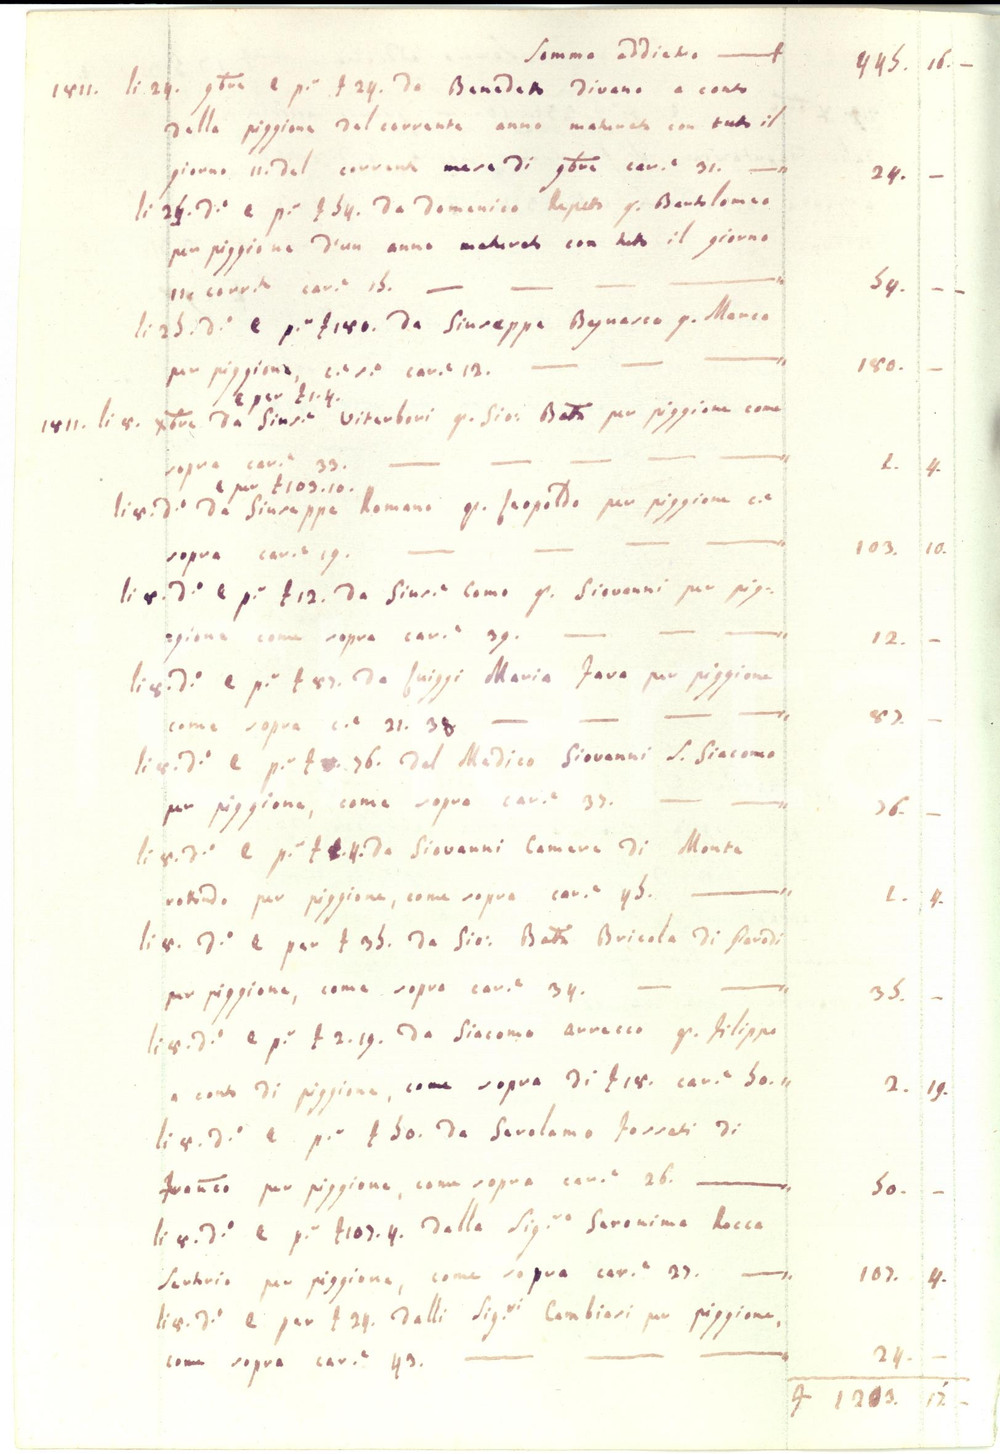 Somma addietro —— £ 445. 16. –
1811. li 24. 9bre e p.r £ 24. da Benedetto Divano a conto
della piggione del corrente anno maturato con tutto il
giorno 11. del corrente mese di 9bre car.e 31. — " 24. –
li 25. d.o e p.r £ 54. da Domenico Repetto q. Bartolomeo
per piggione d'un anno maturato con tutto il giorno
11 corr.te car.e 15. — — — — " 54. – –
li 25. d.o e p.r £ 180. da Giuseppe Bagnasco q. Marco
per piggione, c.e s.a car.e 12. — — — " 180. –
e per £ 1. 4.
1811. li 8. Xbre da Gius.e Viterbori q. Gio: Batta per piggione come
sopra car.e 33. — — — — — " 1. 4.
e per £ 103. 10.
li 8. d.o da Giuseppe Romano q. Leopoldo per piggione c.e
sopra car.e 19. — — — — " 103. 10.
li 8. d.o e p.r £ 12. da Gius.e Como q. Giovanni per pig-
gione come sopra car.e 39. — — — " 12. –
li 8. d.o e p.r £ 87. da Luiggi Maria Fava per piggione
come sopra c.e 21. 38 — — — — " 87. –
li 8. d.o e p.r £ 76. dal Medico Giovanni S. Giacomo
per piggione, come sopra car.e 37. — — " 76. –
li 8. d.o e p.r £ 1. 4. da Giovanni Camera di Monte
rotondo per piggione, come sopra car.e 45. —— " 1. 4.
li 8. d.o e per £ 35. da Gio: Batta Bricola di Parodi
per piggione, come sopra car.e 34. — — " 35. –
li 8. d.o e p.r £ 2. 19. da Giacomo Arrecco q. Filippo
a conto di piggione, come sopra di £ 18. car.e 50. " 2. 19.
li 8. d.o e p.r £ 50. da Gerolamo Fossati di
per piggione, come sopra car.e 26. —— " 50. –
li 8. d.o e p.r £ 107. 4. dalla Sig.ra Geronima Rocca
Sertorio per piggione, come sopra car.e 27. — " 107. 4.
li 8. d.o e per £ 24. dalli Sig.ri Cambiasi per piggione,
come sopra car.e 43. — — — " 24. –
£ 1203. 17. –